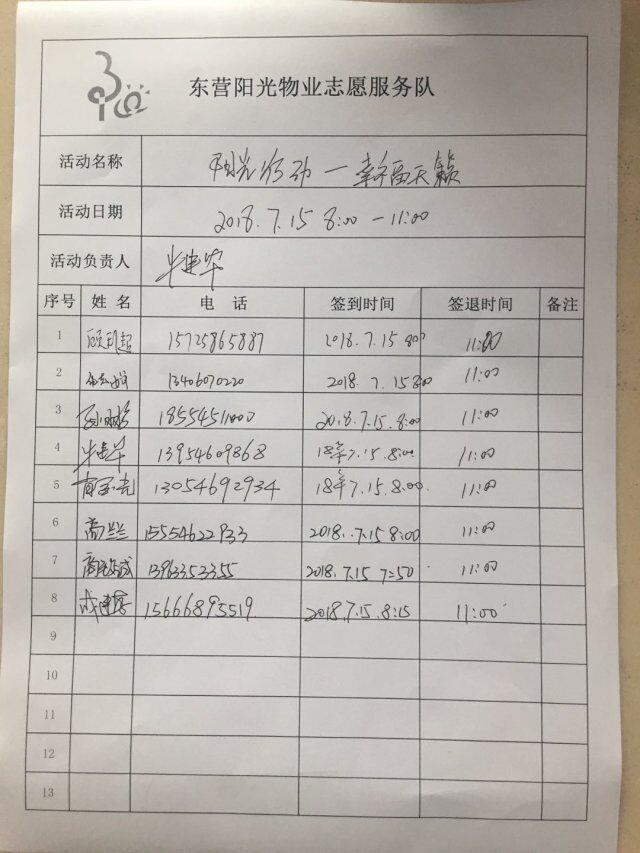 东营阳光物业志愿服务队
活动名称 阳光行动一幸福天籁
活动日期 2018.7.15 8:00 -11:00
活动负责人 牛建华
序号 姓名 电话 签到时间 签退时间 备注
1 15725865887 2018.7.15 800 11:00
2 13406070220 2018.7.15 800 11:00
3 18554511000 2018.7.15.8:00 11:00
4 牛建华 13954609868 18年7.15.8:00 11:00
5 13054692934 18年7.15.8:00 11:00
6 高兰兰 15554622933 2018..7.15 8:00 11:00
7 13963353355 2018.7.15 7:50 11:00
8 15666895519 2018.7.15.8:15 11:00
9
10
11
12
13